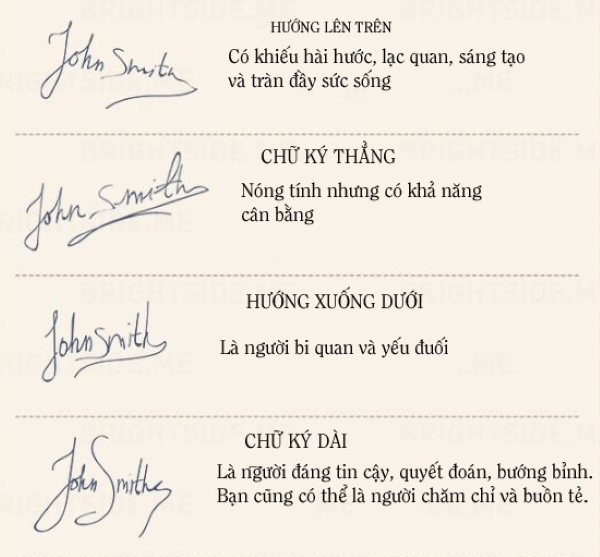 John Smith
HƯỚNG LÊN TRÊN
Có khiếu hài hước, lạc quan, sáng tạo
và tràn đầy sức sống
BRIGHTSIDE.ME
John Smith
CHỮ KÝ THẲNG
Nóng tính nhưng có khả năng
cân bằng
John Smith
HƯỚNG XUỐNG DƯỚI
Là người bi quan và yếu đuối
John Smith
CHỮ KÝ DÀI
Là người đáng tin cậy, quyết đoán, bướng bỉnh.
Bạn cũng có thể là người chăm chỉ và buồn tẻ.